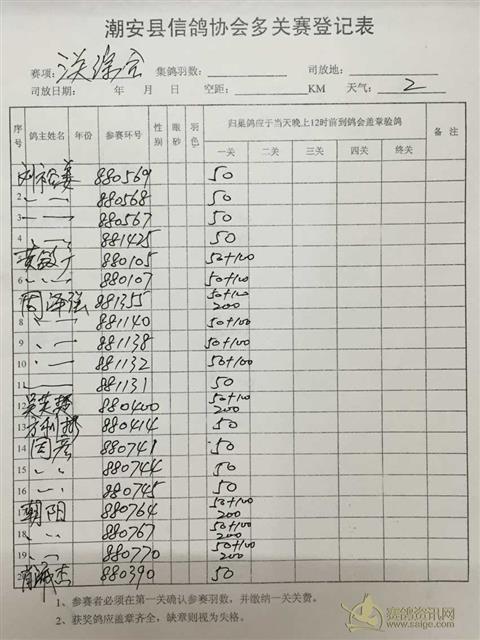 潮安县信鸽协会多关赛登记表
赛项: 集鸽羽数: 司放地:
司放日期: 年 月 日 空距: KM 天气: 2
序号 鸽主姓名 年份 参赛环号 性别 眼砂 羽色 归巢鸽应于当天晚上12时前到鸽会盖章验鸽 备注
一关 二关 三关 四关 终关
880569 50
2 〃 880568 50
3 880567 50
4 881425 50
880105 50+100
6 〃 880107 50+100
周泽强 881355 50+100 200
8 881140 50+100
9 881138 50+100
10 881132 50+100
11 881131 50
12 880400 50+100 200
13 880414 50
14 880741 50
15 〃 880744 50
16 〃 880745 50
17 朝阳 880764 50+100 200
18 〃 880767 50+100 200
19 〃 880770 50+100 200
880390 50
1、参赛者必须在第一关确认参赛羽数，并缴纳一关关费。
2、获奖鸽应盖章齐全，缺章则视为失格。
赛鸽资讯网
www.saige.com